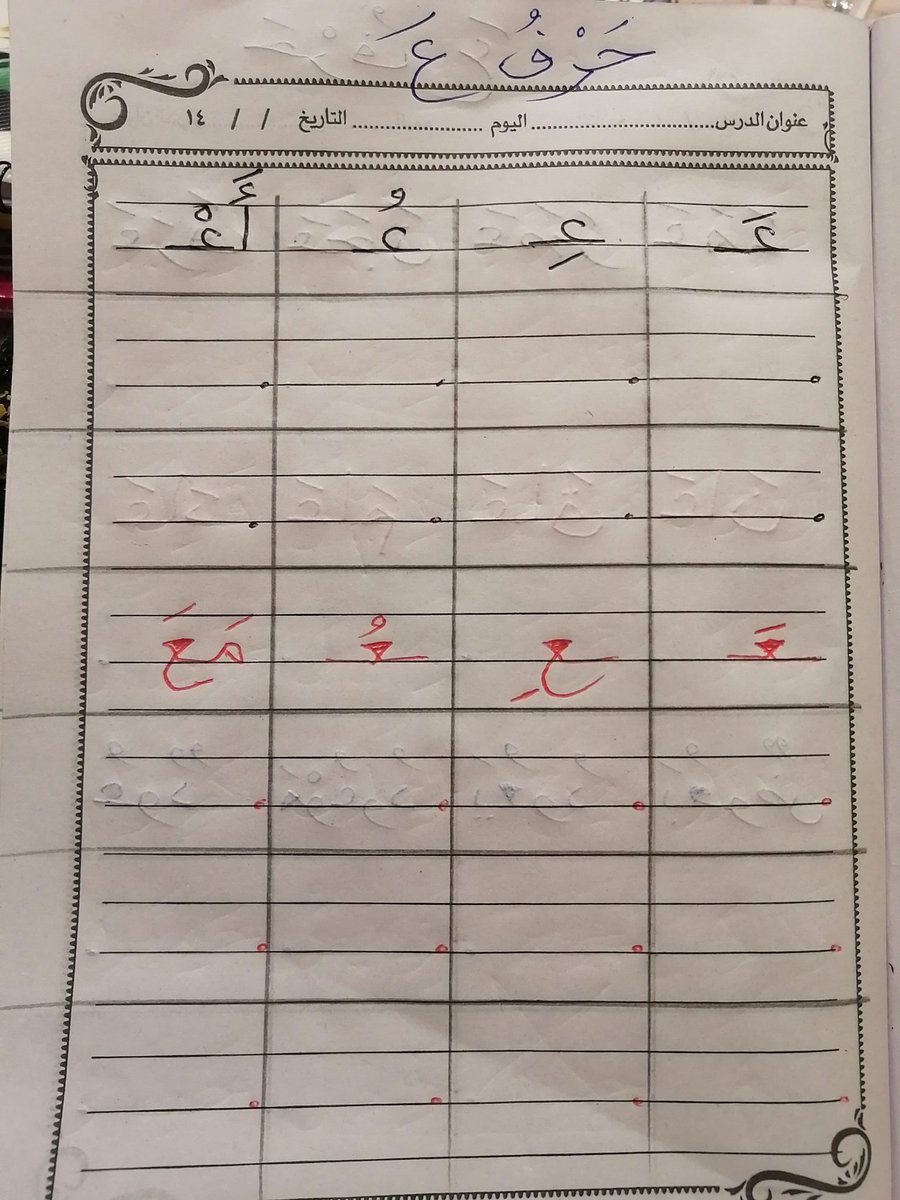 حَرْفُ ع
عنوان الدرس.................................... اليوم ........................ التاريخ / / ١٤
عَ عِ عُ أَعْ
عَ عِ عُ مَعَ